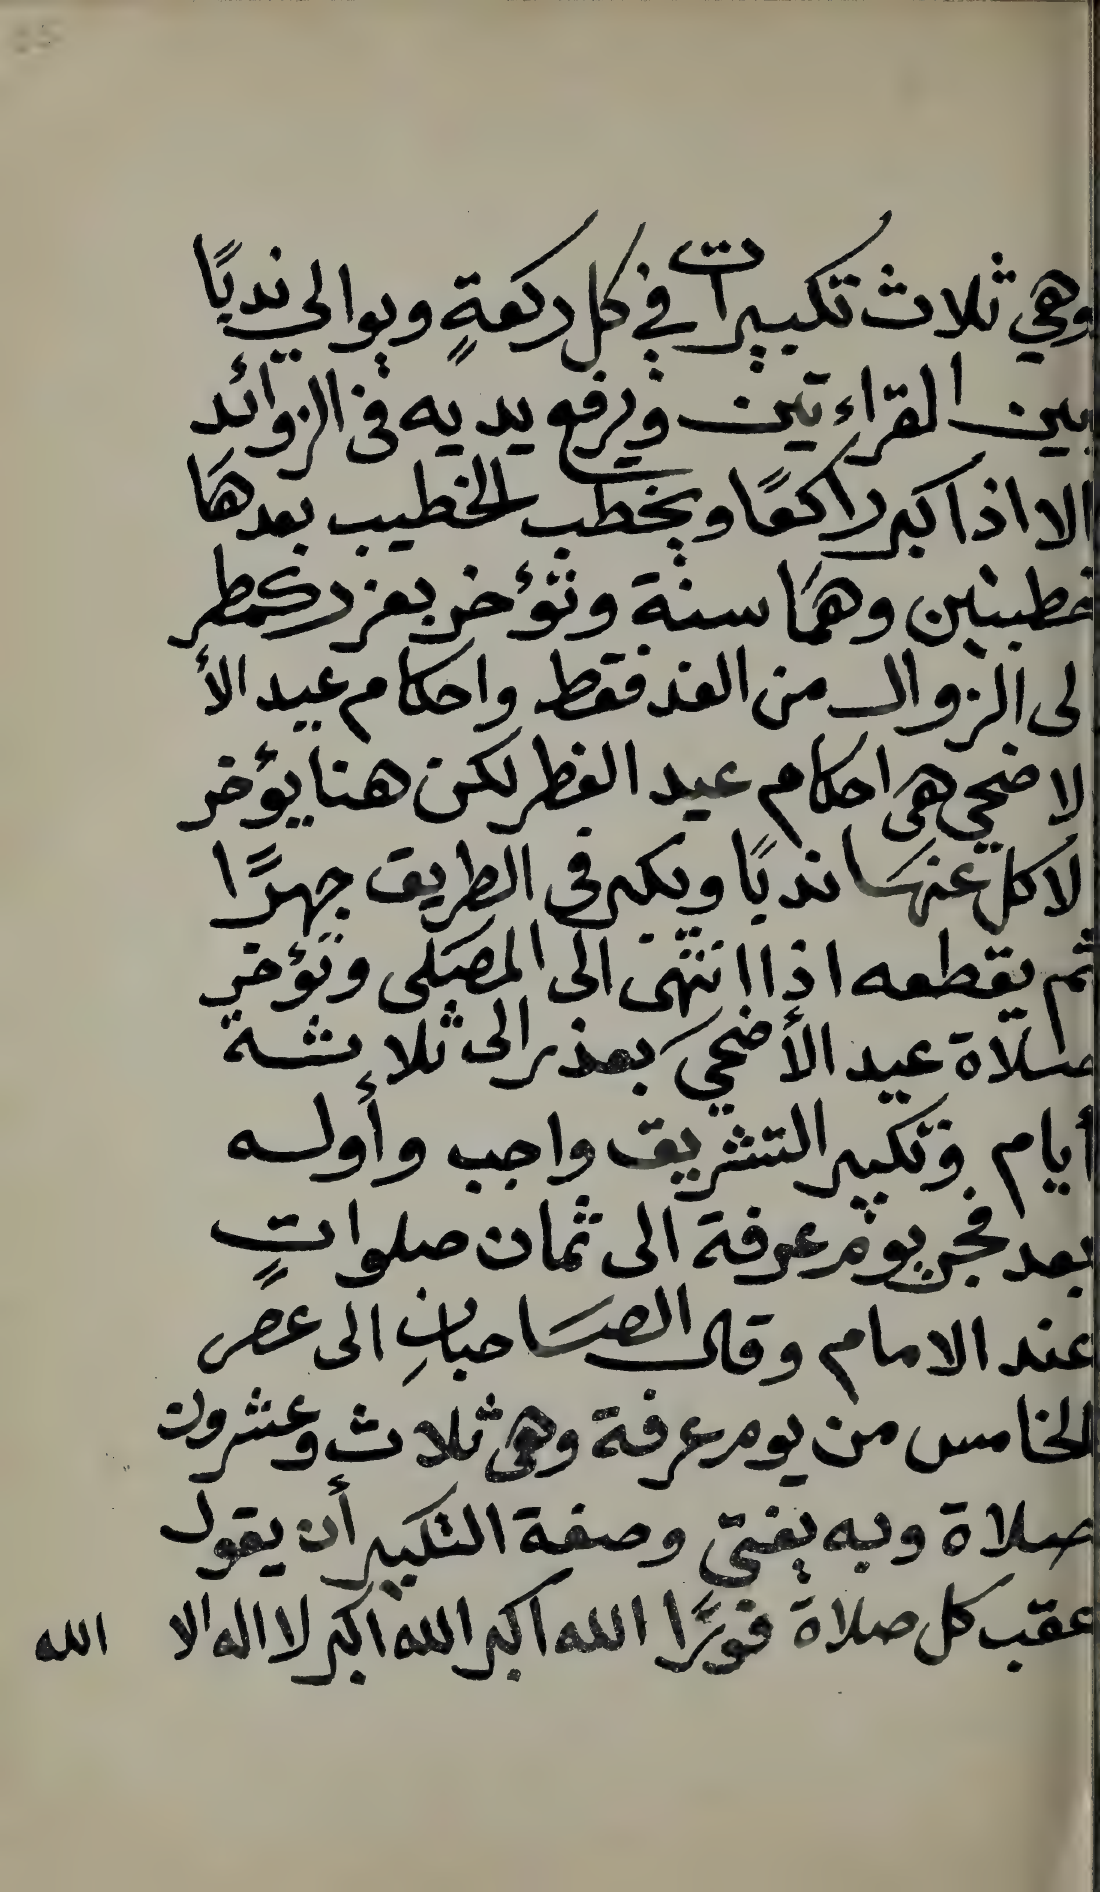 وهي ثلاث تكبيرات في كل ركعةٍ ويوالي ندبًا
بين القراءتين ويرفع يديه في الزوائد
الا اذا كبر راكعًا ويخطب الخطيب بعدها
خطبتين وهما سنة وتؤخر بعذر كمطر
لى الزوال من الغد فقط واحكام عيد الأ
لاضحي هي احكام عيد الفطر لكن هنا يؤخر
لاكل عنها ندبًا ويكبر في الطريق جهرًا
ثم يقطعه اذا انتهى الى المصلى وتؤخر
صلاة عيد الأضحي بعذر الى ثلاثة
أيام وتكبير التشريق واجب وأوله
بعد فجر يوم عرفة الى ثمان صلواتٍ
عند الامام وقال الصاحبانِ الى عصر
الخامس من يوم عرفة وهي ثلاث وعشرون
صلاة وبه يفتى وصفة التكبير أن يقول
عقب كل صلاة فورًا الله اكبر الله اكبر لا اله الا الله